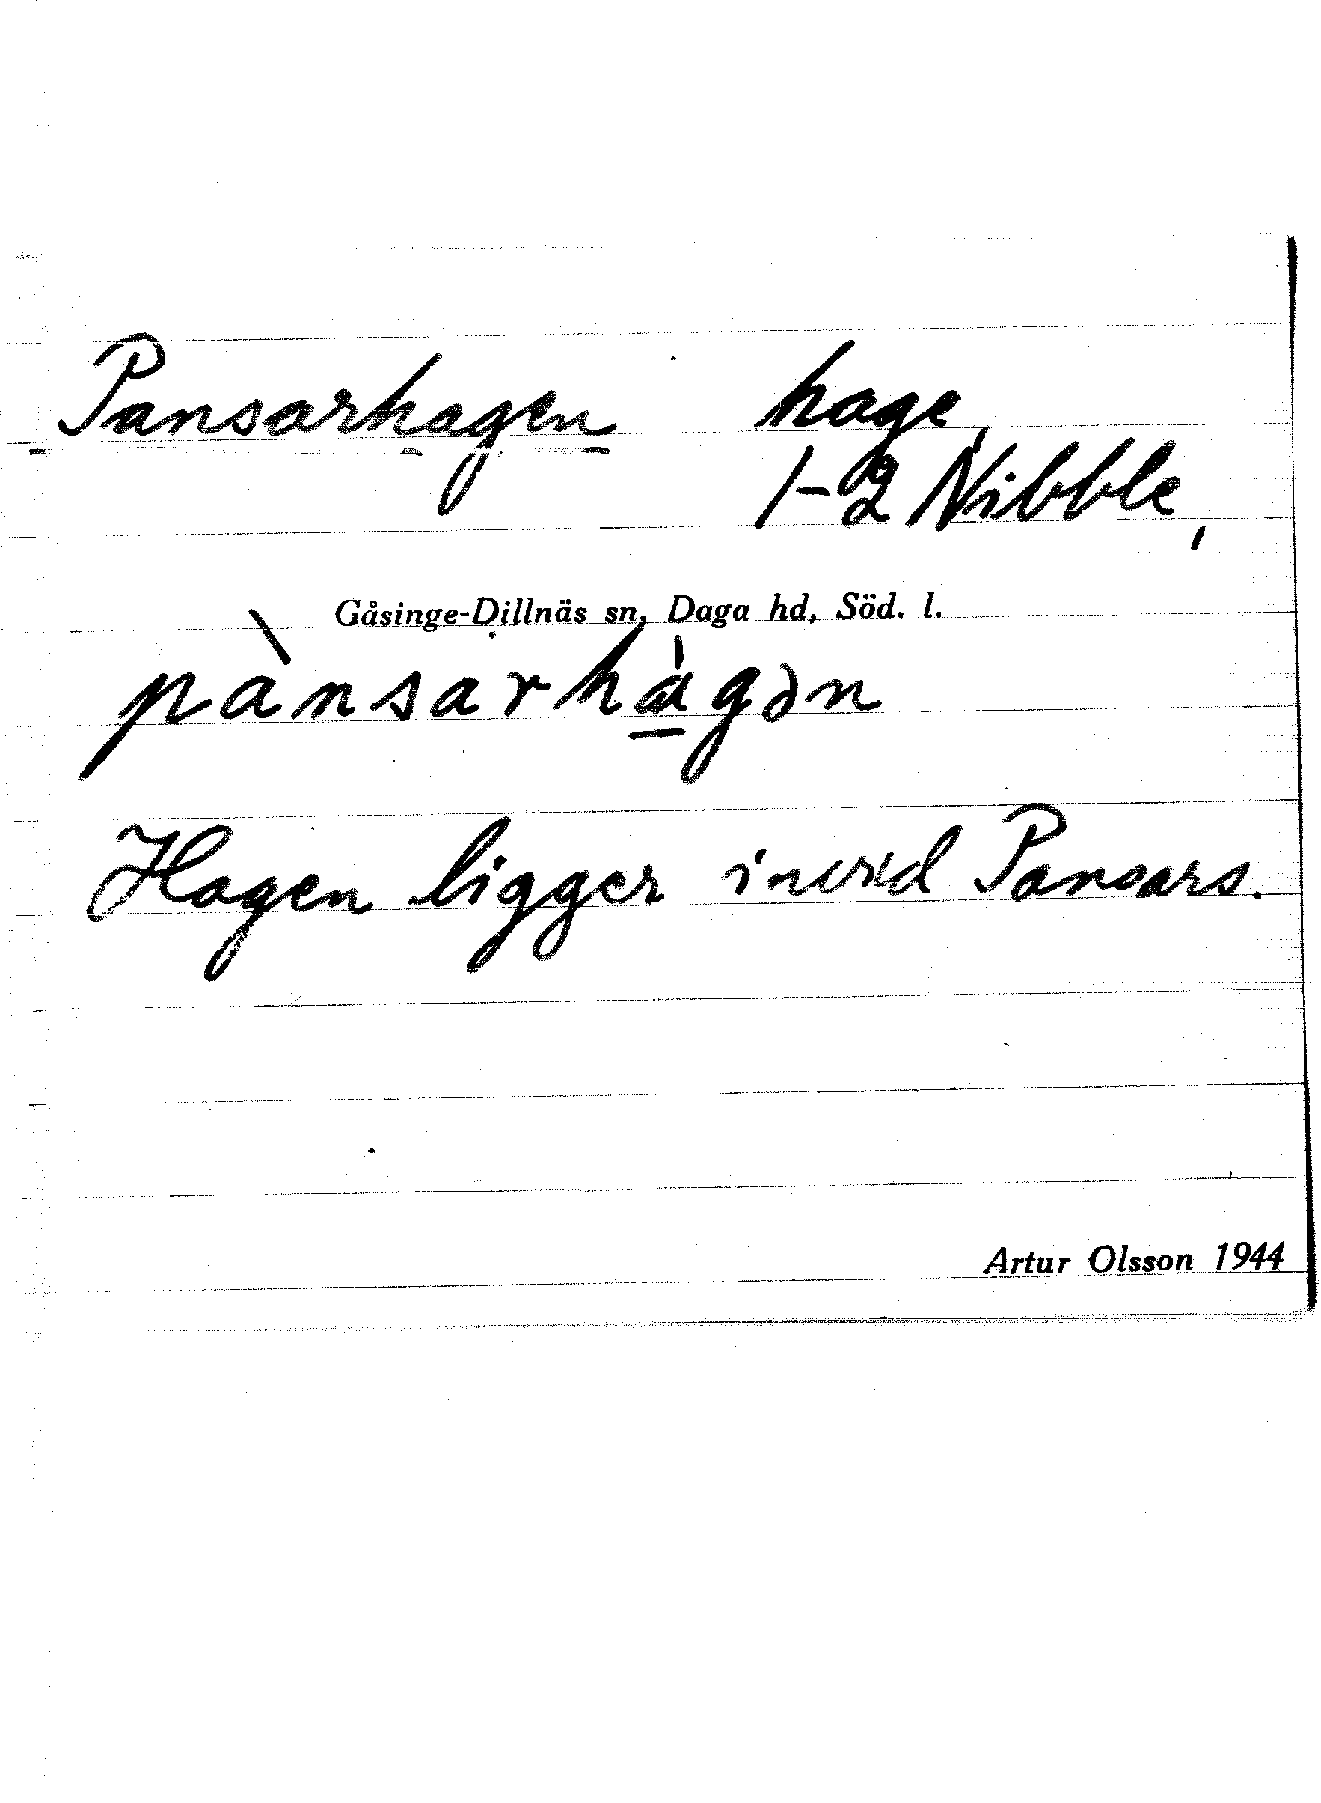 Pansarhagen hage,
1-2 Nibble,
Gåsinge-Dillnäs sn, Daga hd, Söd. l.
pànsarhà̱gən
Hagen ligger invid Pansars.
Artur Olsson 1944